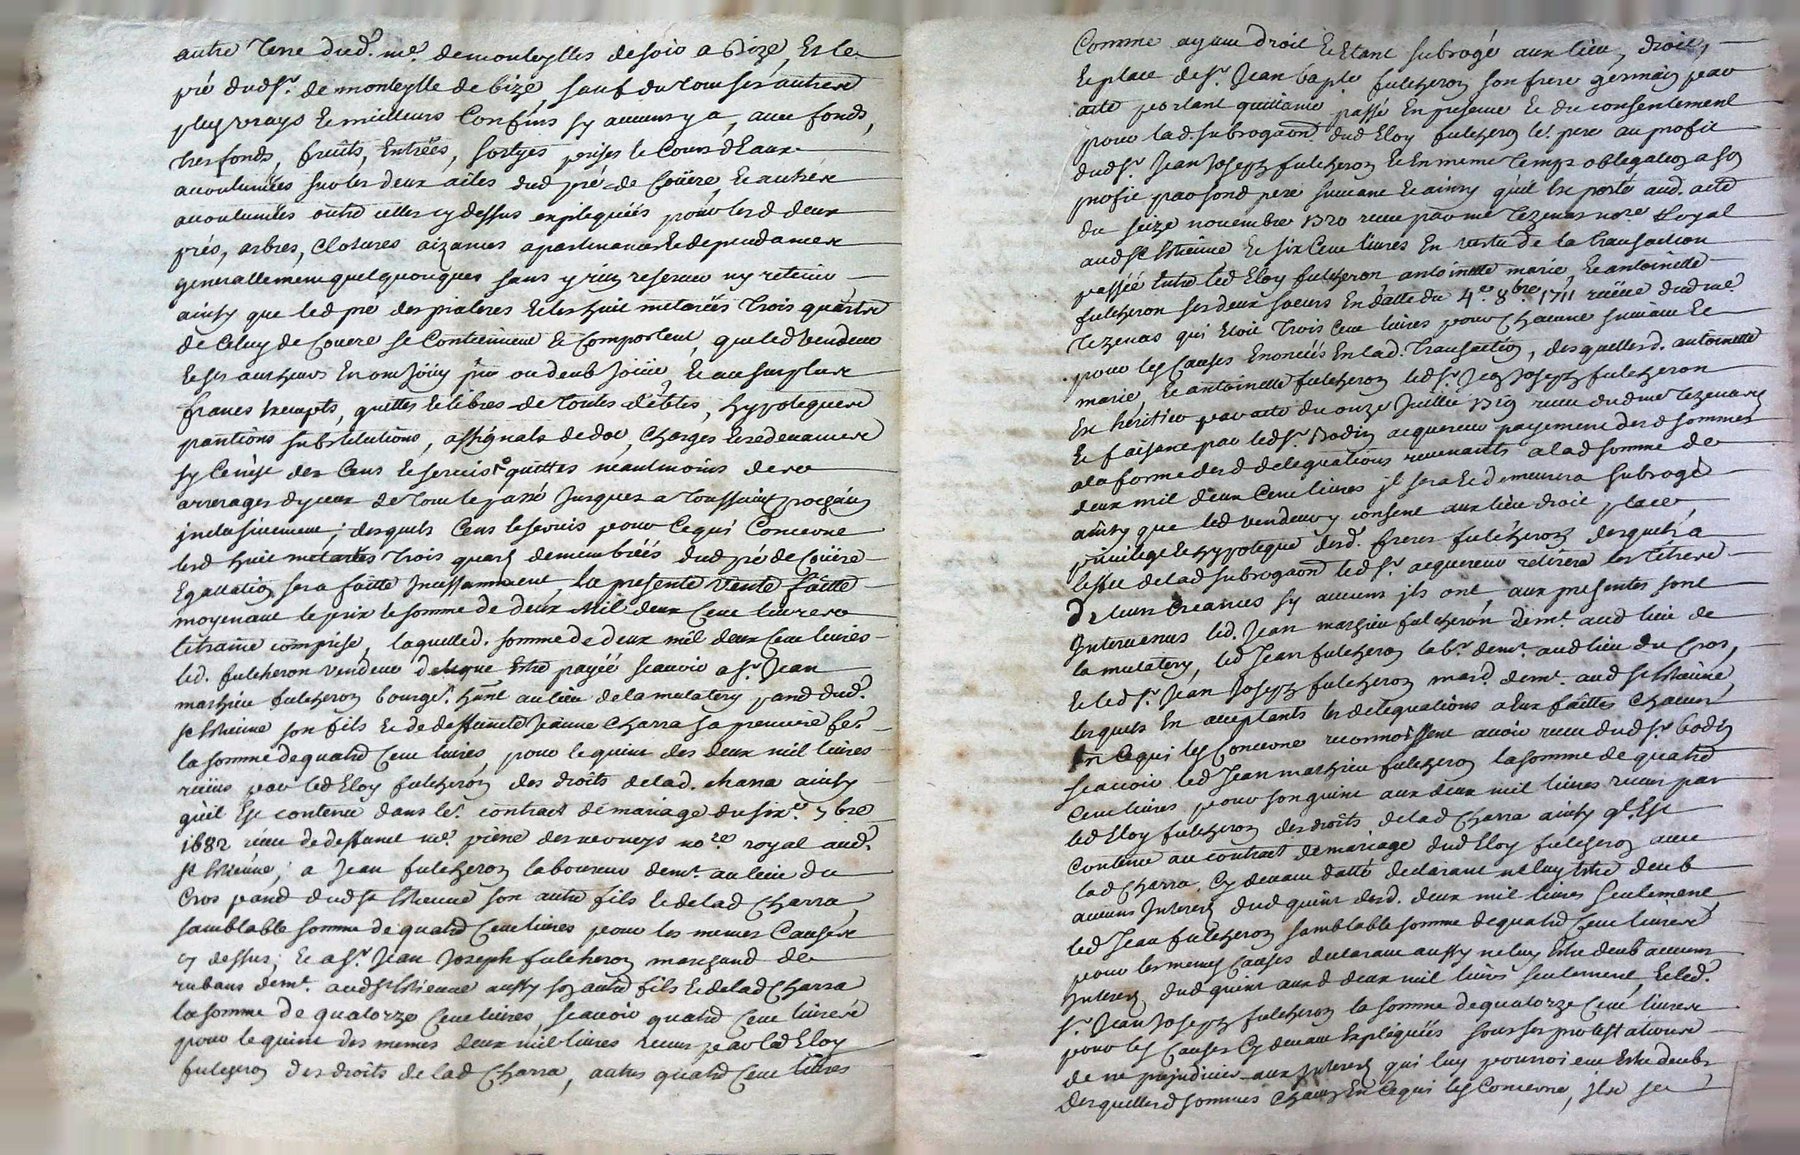 autre terre dud. me. demonteylles de soir a Bize, Et le
pré dud sr. de monteylle de bize, sauf du tout ses autres
plus vrays et meilleurs Confins sy aucuns y a, avec fonds,
tresfonds, fruits, Entrées, sortyes prises et Cours d'Eaux
acoutumées sur les deux ailes dud pré de Coüere, et autres
acoutumées outre celles cy dessus expliquées pour lesd deux
prés, arbres, Clotures aizances apartenances et dependances
generallement quelquonques sans y rien reserver ny retenir
ainsy que led pré des pialeres et les huit metarées trois quarts
de Celuy de Couere se Contiennent et Comportent, que led Vendeur
et ses autheurs En ont Joüy Jeu ou deub Joüir, et au surplus
francs Exempts, quittes et libres de toutes debtes, hypoteques
pantions substitutions, assignals de dot, charges et redevances
sy Ce n'est des Cens et servis quittes neantmoins de
arrerages d'yceux de tout le passé Jusques a toussaints prochain
inclusivement; desquels Cens et servis pour Ce qui Concerne
lesd huit metarées trois quarts demembrées dud pré de Coüere
Egallation sera faitte Incessamment, la presente Vente faitte
moyenant le prix et somme de deux mil deux Cent livres
Etraine comprise, laquelled. somme de deux mil deux Cent livres
led. fulcheron vendeur delegue Estre payée scavoir a sr. Jean
mathieu fulcheron bourgs. hant au lieu de la mulatery parsse dud.
st Etienne son fils et de deffuncte Jeanne Charra sa premiere fe.
la somme de quatre Cent livres, pour le quint des deux mil livres
reçues par led Eloy fulcheron des droits de lad. charra ainsy
qu'il Est contenu dans le. contract de mariage du six.e 7bre
1682 reçu de deffunct me. pierre desverneys no.re royal aud.
st Etienne; a Jean fulcheron laboureur demt. au lieu du
Cros parsse dud st Etienne son autre fils et de lad Charra,
samblable somme de quatre Cent livres pour les memes Causes
cy dessus; et a sr. Jean Joseph fulcheron marchand de
rubans demt. aud st Etienne aussy son autre fils et de lad Charra
la somme de quatorze Cent livres, scavoir quatre Cent livres
pour le quint des memes deux mil livres recues par led Eloy
fulcheron des droits de lad Charra, autres quatre Cent livres
Comme ayant droit et Etant subrogé aux lieu, droit,
et place de sr. Jean bapte. fulcheron son frere germain par
acte portant quittance passé En presence et du consentement
pour lad. subrogaon dud Eloy fulcheron le. pere au profit
dud sr. Jean Joseph fulcheron et En meme temps obligation a son
profit par sond pere suivant et ainsy qu'il Est porté aud. acte
du seize novembre 1720 reçu par me Tezenas no.re Royal
aud st Etienne et six Cent livres En vertu de la transaction
passée Entre led Eloy fulcheron antoinette marie, et antoinette
fulcheron ses deux soeurs En datte du 4.e 8bre. 1711 reçüe dud me
Tezenas qui Etoit trois Cent livres pour Chacune suivant et
pour les Causes Enoncées En lad. transaction, desquelles d. antoinette
marie, et antoinette fulcheron led sr. Jean Joseph fulcheron
Est héritier par acte du onze Juillet 1719 reçu dud me Tezenas
et faisant par led sr. Bodin acquereur payement desd sommes
a la forme desd delegations revenants a lad somme de
deux mil deux Cent livres il sera et demeurera subrogé
ainsy que led vendeur y consent aux lieu droit place,
privilege et hypoteque desd. freres fulcheron desquels a
l'effet de lad subrogaon led sr. acquereur retirera les titres
de leurs creances sy aucuns ils ont, aux presentes sont
Intervenus led. Jean mathieu fulcheron demt. aud lieu de
la mulatery, led Jean fulcheron labr. demt. aud lieu du Cros,
et led sr. Jean Joseph fulcheron mard. demt. aud st Etienne,
lesquels En acceptants les delegations a Eux faittes Chacun
En Ce qui les Concerne reconnoissent avoir reçu dud sr. bodin
scavoir led Jean mathieu fulcheron la somme de quatre
Cent livres pour son quint aux deux mil livres recues par
led Eloy fulcheron des droits de lad Charra ainsy ql. Est
Contenu au contract de mariage dud Eloy fulcheron avec
lad Charra Cy devant datté declarant ne luy Estre deub
aucuns Interets dud quint desd. deux mil livres seulement
led Jean fulcheron samblable somme de quatre Cent livres
pour les memes Causes declarant aussy ne luy Estre deub aucuns
Interets dud quint auxd deux mil livres seulement, et led.
sr. Jean Joseph fulcheron la somme de quatorze Cent livres
pour les Causes Cy devant Expliquées sous ses protestations
de ne prejudicier aux Interets qui luy pourroient Estre deubs,
desquelles d sommes Chacun En Ce qui les Concerne, ils se